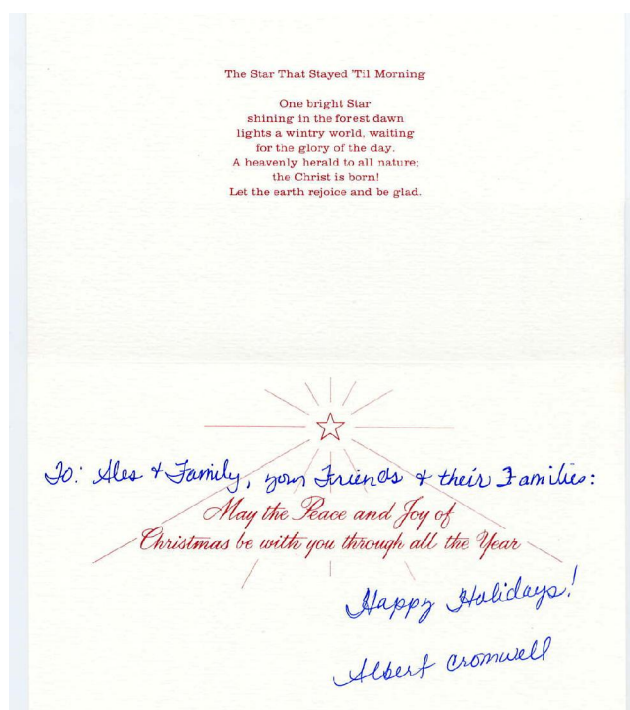 The Star That Stayed 'Til Morning
One bright Star
shining in the forest dawn
lights a wintry world, waiting
for the glory of the day.
A heavenly herald to all nature;
the Christ is born!
Let the earth rejoice and be glad.
To: Ales & Family, your Friends & their Families:
May the Peace and Joy of
Christmas be with you through all the Year
Happy Holidays!
Albert Cromwell